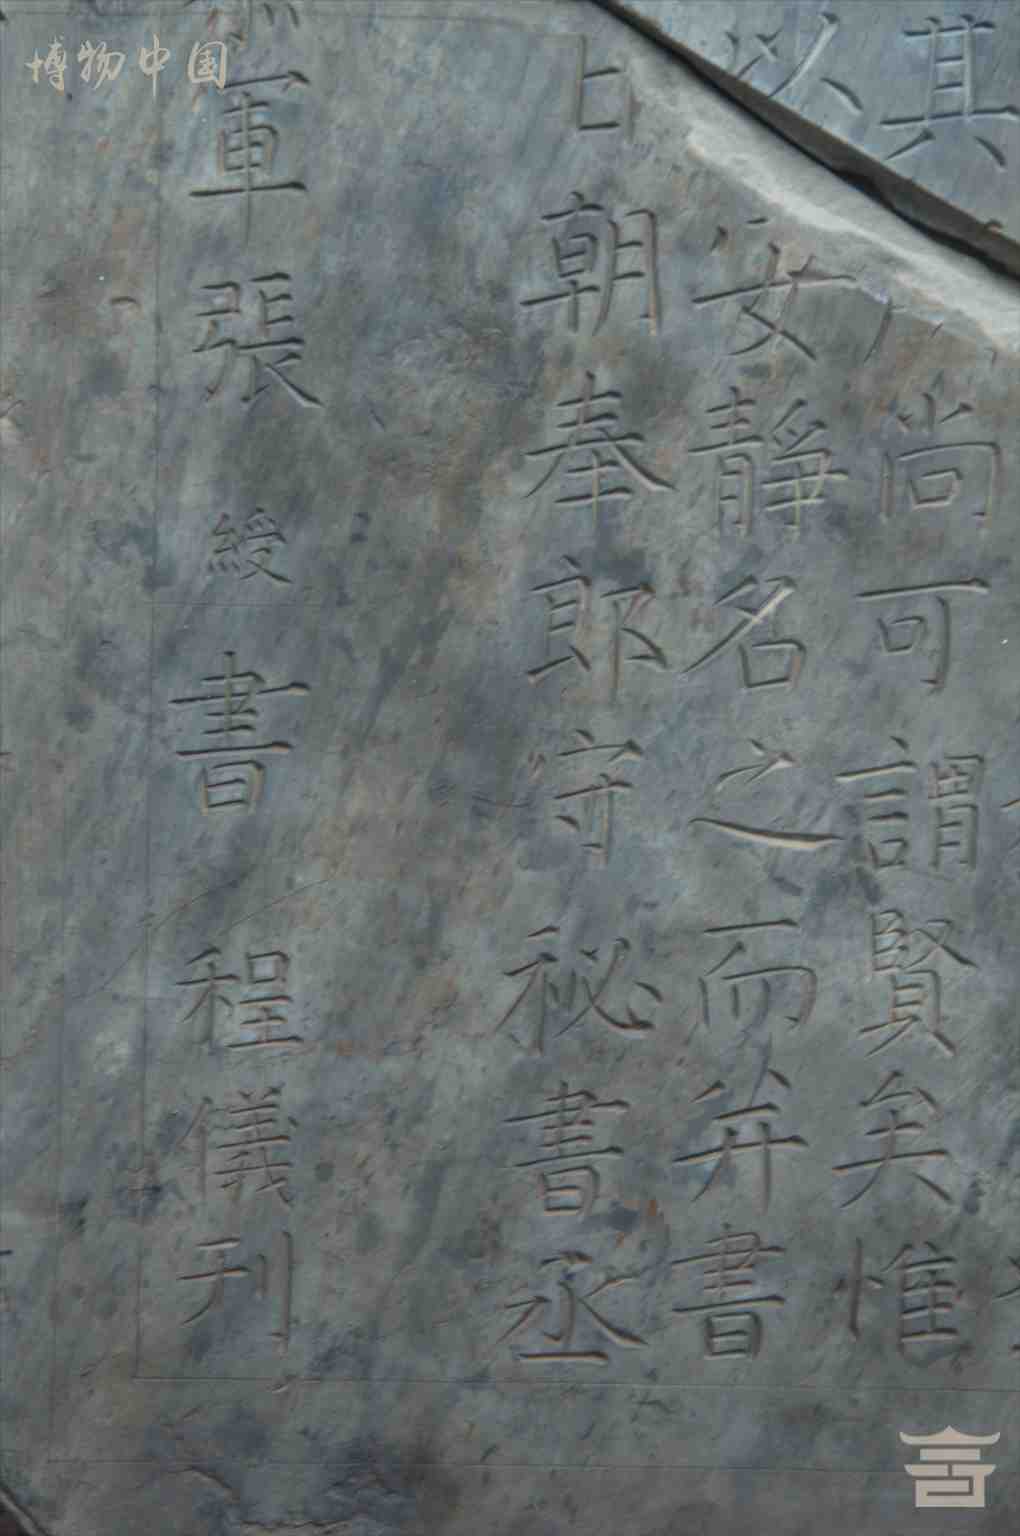 博物中国
其
尚可謂賢矣惟
以
安靜名之而并書
日朝奉郎守秘書丞
軍張綬書程儀刊